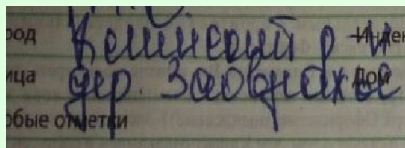 род Клинский р-н Индек
ица дер. Заовражье Дом
обые отметки